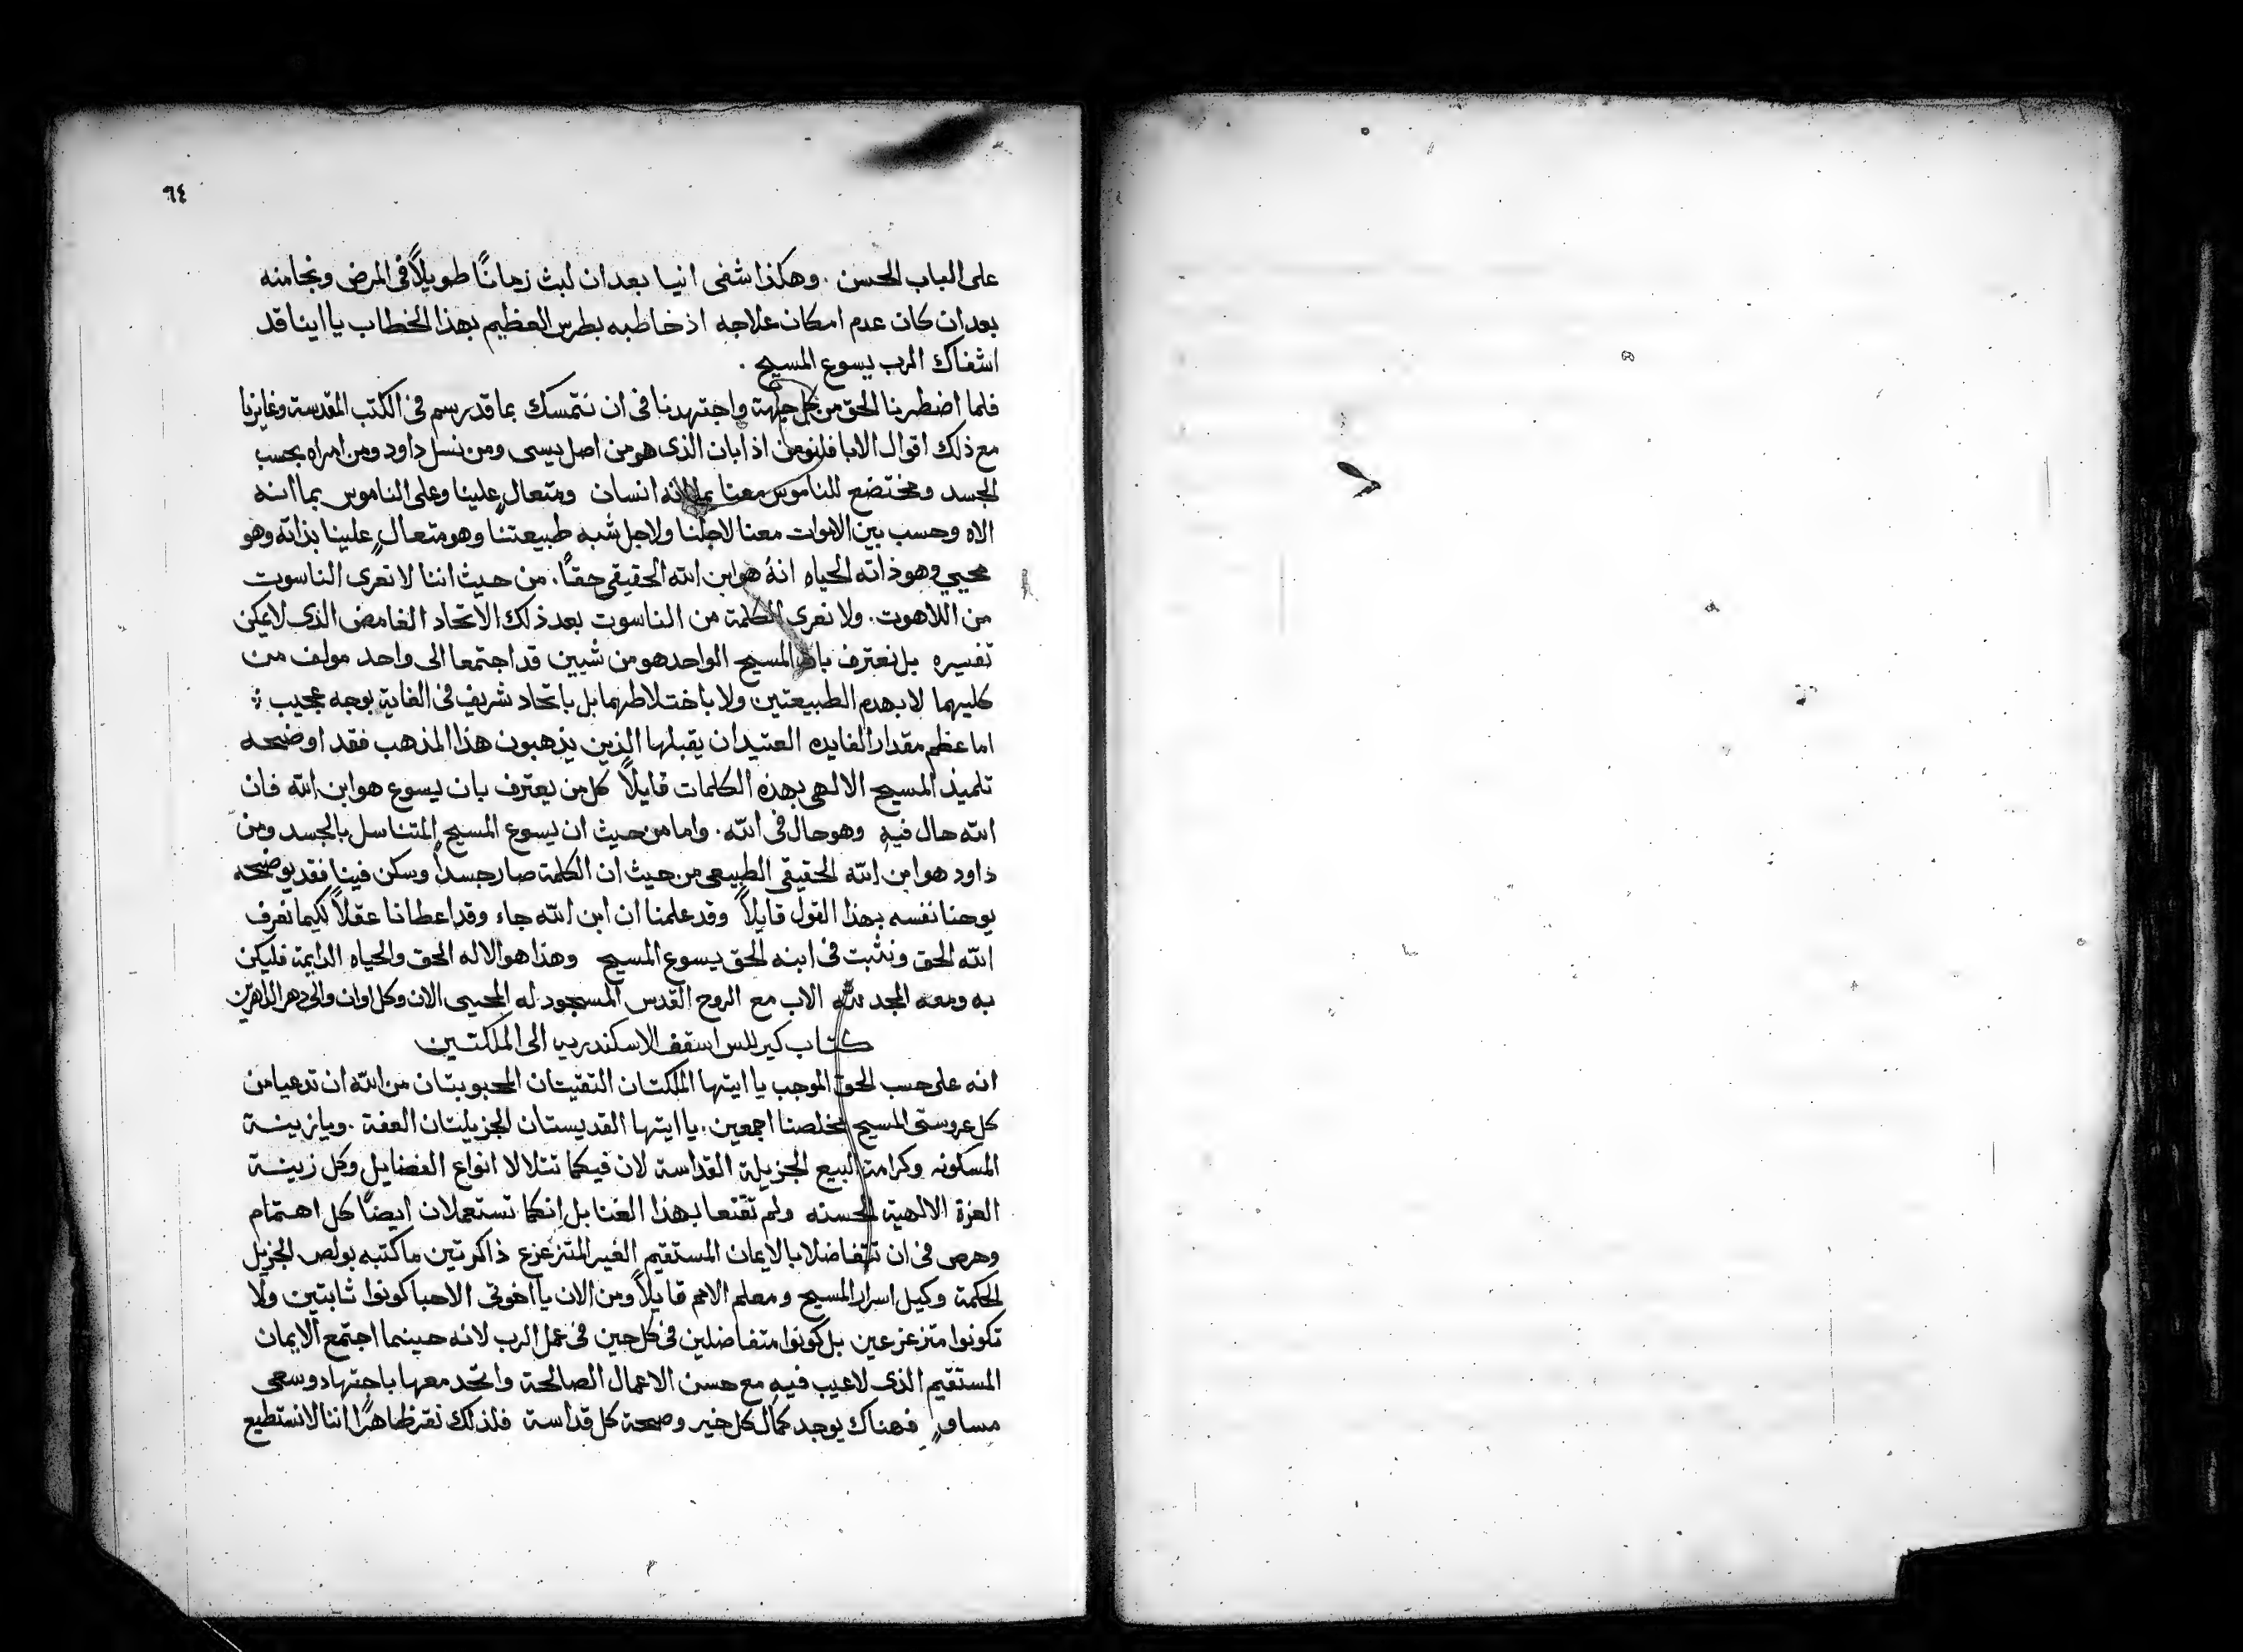 ٦٤
على الباب الحسن . وهكذا شفى انيا بعد ان لبث زمانًا طويلاً في المرض ونجا منه
بعد ان كان عدم امكان علاجه اذ خاطبه بطرس العظيم بهذا الخطاب يا اينا قد
اشفاك الرب يسوع المسيح .
فلما اضطرنا الحق من كل جهة واجتهدنا في ان نتمسك بما قد رسم في الكتب المقدسة وغايزنا
مع ذلك اقوال الابا فلنومن اذا بان الذي هو من اصل يسى ومن نسل داود ومن امراه بحسب
الجسد ومختضع للناموس معنا بما انه انسان ومتعالٍ علينا وعلى الناموس بما انه
الاه وحسب بين الاموات معنا لاجلنا ولاجل شبه طبيعتنا وهو متعالٍ علينا بذاته وهو
محيي وهو ذاته الحياه انه هو ابن الله الحقيقي حقًا . من حيث اننا لا نعرى الناسوت
من اللاهوت . ولا نعرى الكلمة من الناسوت بعد ذلك الاتحاد الغامض الذي لا يمكن
تفسيره بل نعترف بان المسيح الواحد هو من شيين قد اجتمعا الى واحد مولف من
كليهما لا بهدم الطبيعتين ولا باختلاطهما بل باتحاد شريف في الغاية بوجه عجيب :
اما عظم مقدار الفايده العتيد ان يقبلها الذين يذهبون هذا المذهب فقد اوضحه
تلميذ المسيح الالهي بهذه الكلمات قايلاً كل من يعترف بان يسوع هو ابن الله فان
الله حال فيه وهو حال في الله . واما من حيث ان يسوع المسيح المتناسل بالجسد ومن
داود هو ابن الله الحقيقي الطبيعي من حيث ان الكلمة صار جسداً وسكن فينا فقد يوضحه
يوحنا نفسه بهذا القول قايلاً وقد علمنا ان ابن الله جاء وقد اعطانا عقلاً لكيما نعرف
الله الحق ونثبت في ابنه الحق يسوع المسيح وهذا هو الاله الحق والحياه الدايمة فليكن
به ومعه المجد لله الاب مع الروح القدس المسجود له المحيي الان وكل اوان والى دهر الداهرين
كتاب كيرللس اسقف الاسكندريه الى الملكتين
انه على حسب الحق الموجب يا ايتها الملكتان التقيتان المحبوبتان من الله ان تدعيا من
كل عروستى المسيح مخلصنا اجمعين . يا ايتها القديستان الجزيلتان العفة . ويا زينة
المسكونه وكرامة البيع الجزيلة القداسة لان فيكما تتلالا انواع الفضايل وكل زينة
العزة الالهية الحسنه ولم تقتنعا بهذا الغنا بل انكما تستعملان ايضًا كل اهتمام
وهرص في ان تتفاضلا بالايمان المستقيم الغير المتزعزع ذاكرتين ما كتبه بولص الجزيل
الحكمة وكيل اسرار المسيح ومعلم الامم قايلاً ومن الان يا اخوتي الاحبا كونوا ثابتين ولا
تكونوا متزعزعين بل كونوا متفاضلين في كل حين في عمل الرب لانه حينما اجتمع الايمان
المستقيم الذي لا عيب فيه مع حسن الاعمال الصالحة واتحد معها باجتهاد وسعى
مساوٍ فهناك يوجد كمال كل خير وصحة كل قداسة فلذلك نقر ظاهرًا اننا لا نستطيع